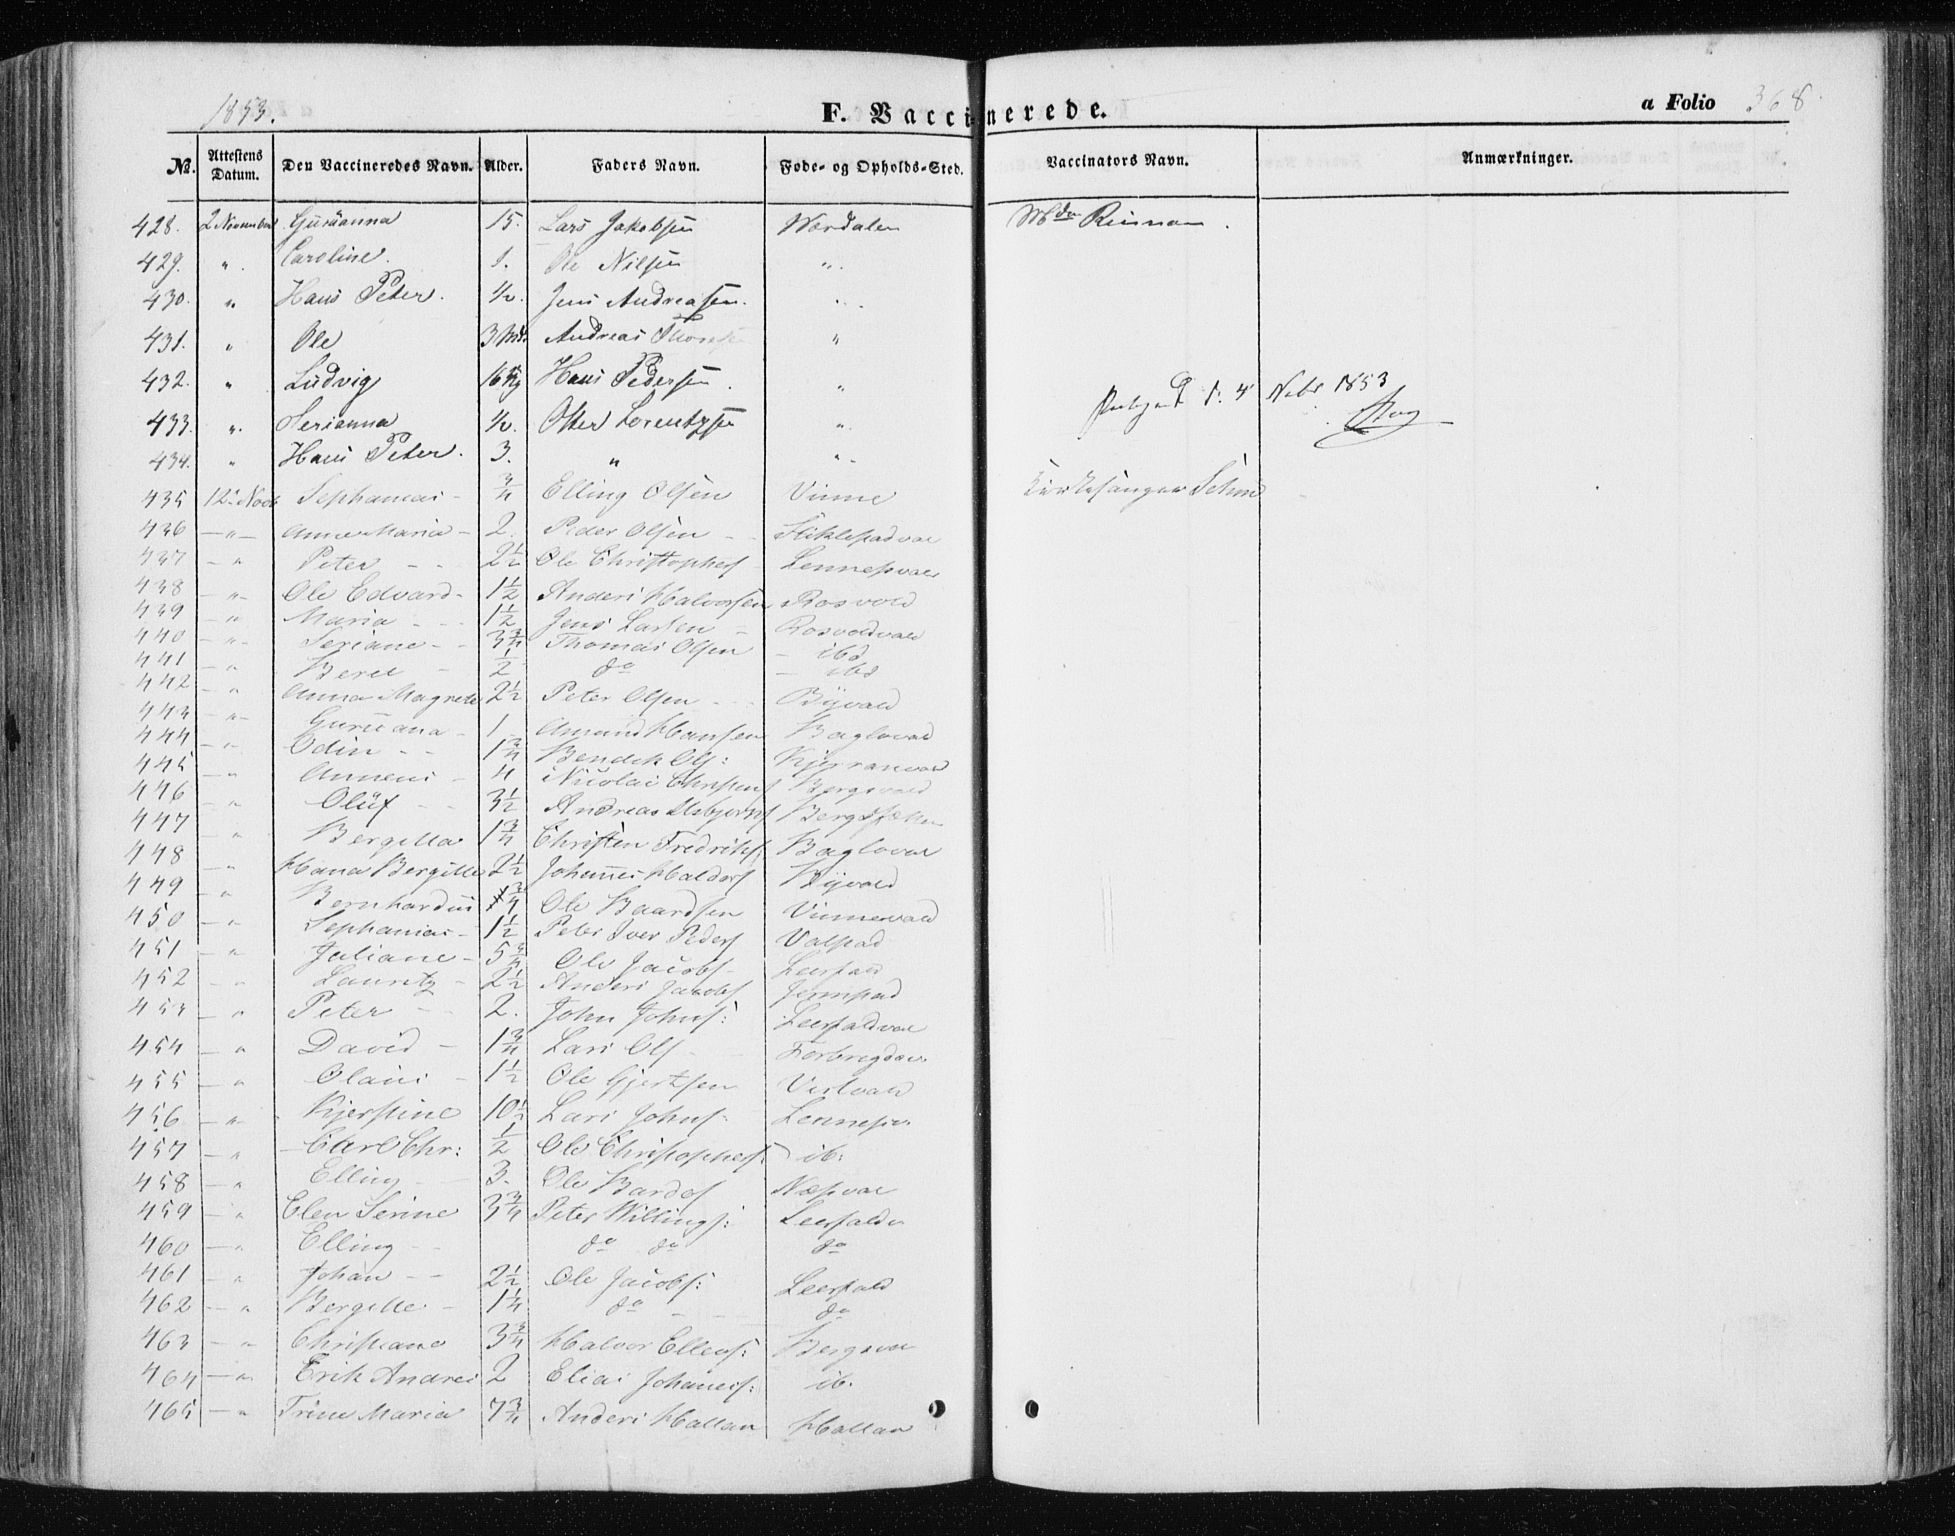 1853.
F. Vaccinerede.
a Folio 368.
No. Attestens Datum. Den Vaccineredes Navn. Alder. Faders Navn. Føde- og Opholds-Sted. Vaccinators Navn. Anmærkninger.
428. 2 November Guruanna 15. Lars Jakobsen Værdalen Md Rinnan.
429. ". Caroline. 1. Ole Nilsen ".
430. " Hans Peter. 1/2. Jens Andreassen. "
431. " Ole 3 Md. Andreas "
432. " Ludvig 16 Hans Pedersen. "
1853
433. ". Serianna 1/2. Otter Lorentzsen ".
434. " Hans Peter. 3. " "
435 12 Novb Sephanias - 3/4 Elling Olsen Vinne Kirkesanger
436 - " - Anne Maria - 2. Peder Olsen - - Stiklestadval
437 - " Peter - - 2 1/2 Ole Christophers Lennesvald
438 - " - Ole Edvard - 1 1/2 Anders Halvorsen Rosvold
439 - " Maria - - - 1 1/2 Jens Larsen - Rosvoldvald
440 - " - Seriane - - 3 3/4 Thomas Olsen - ibd
441 - " Beret - 1/2 do - ibd
442 - " Anna Magrete 2 1/2 Peter Olsen - - - Byvald
443 - " - Guruana - 1 - Amund Hansen Baglovald
444 - " Odin - - 1 3/4 Bendik Ols: Kjerranvald
445 - " Anneus - 4 Nicolai Christens Bergsvald
446 - " Oluf - - 3 1/2 Andreas Asbjørns
447 - " Bergitta 1 3/4 Christen Fredriks: Baglovald
448 - " Hana Bergitte 2 1/2 Johannes Haldors Byvald
449 - " Bernhardus 3/4 Ole Baardsen Vinnesvald
450 - " Sephanias - 1 1/2 Peter Iver Peders Valstad
451 - " Juliane - 5 3/4 Ole Jacobs - Leerfald
452 - " Lauritz - 2 1/2 Anders Jacobs
453 - " Peter - - 2. John Johns: Leerfaldval
454 - " David - 1 3/4 Lars Ols - Forbregden
455 - " Olaus - 1 1/2 Ole Gjertsen
456 - " - Kjerstine 10 1/2 Lars Johns: Lennesv
457 - " - Carl Chr: 1/2 Ole Christophers: ib:
458 - " Elling - 3. Ole Bardos Næsval
459 - " Elen Serine 3 3/4 Peter Willings: Leerfaldv
460 - " Elling - - do do do
461 - " Johan - - 2 1/2 Ole Jacobs: Leerfald
462 - " Bergitte - 1 1/4 do - do
463 - " Christiane 3 3/4 Halvor Ellevs: Bergsval
464 - " Erik Andreas 2 Elias Johaness: ib.
465 - " Trine Maria 7 3/4 Anders Hallan Hallan